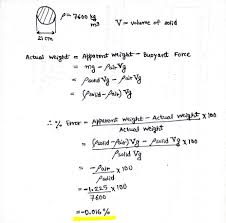 ρ = 7600 kg/m³
V = volume of solid
21 cm
Actual weight = Apparent weight - Buoyant Force
= mg - ρair Vg
= ρsolid Vg - ρair Vg
= (ρsolid - ρair) Vg
∴ % Error = Apparent weight - Actual weight / Actual weight × 100
= (ρsolid - ρair) Vg - ρsolid Vg / ρsolid Vg × 100
= -ρair / ρsolid × 100
= -1.225 × 100 / 7600
= -0.016 %